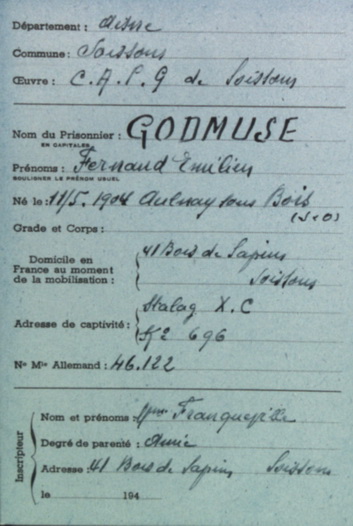 Département : Aisne
Commune : Soissons
Œuvre : C.A.P.G de Soissons
Nom du Prisonnier : GODMUSE
EN CAPITALES
Prénoms : Fernand Emilien
SOULIGNER LE PRÉNOM USUEL
Né le : 11/5. 1904 Aulnay sous Bois
(S & O)
Grade et Corps :
Domicile en
France au moment
de la mobilisation :
41 Bois de Sapins
Soissons
Adresse de captivité :
Stalag X.C
K2 696
No Mle Allemand : 46.122
Inscripteur
Nom et prénoms : Mme Franqueville
Degré de parenté : Amie
Adresse : 41 Bois de Sapins Soissons
le 194